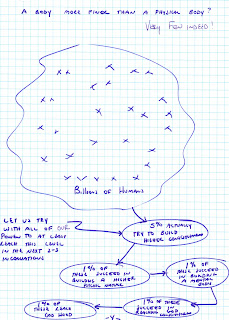 A BODY MORE FINER THAN A PHYSICAL BODY?
VERY FEW INDEED!
BILLIONS OF HUMANS
LET US TRY
WITH ALL OF OUR
POWER TO AT LEAST
REACH THIS LEVEL
IN THE NEXT 2-3
INCARNATIONS
5% ACTUALLY
TRY TO BUILD
HIGHER
1% OF
THESE SUCCEED IN
BUILDING A HIGHER
1% OF
THESE SUCCEED
IN BUILDING
A MENTAL
BODY
1% OF THESE
SUCCEED
GOD
1% OF
THESE REACH
GOD